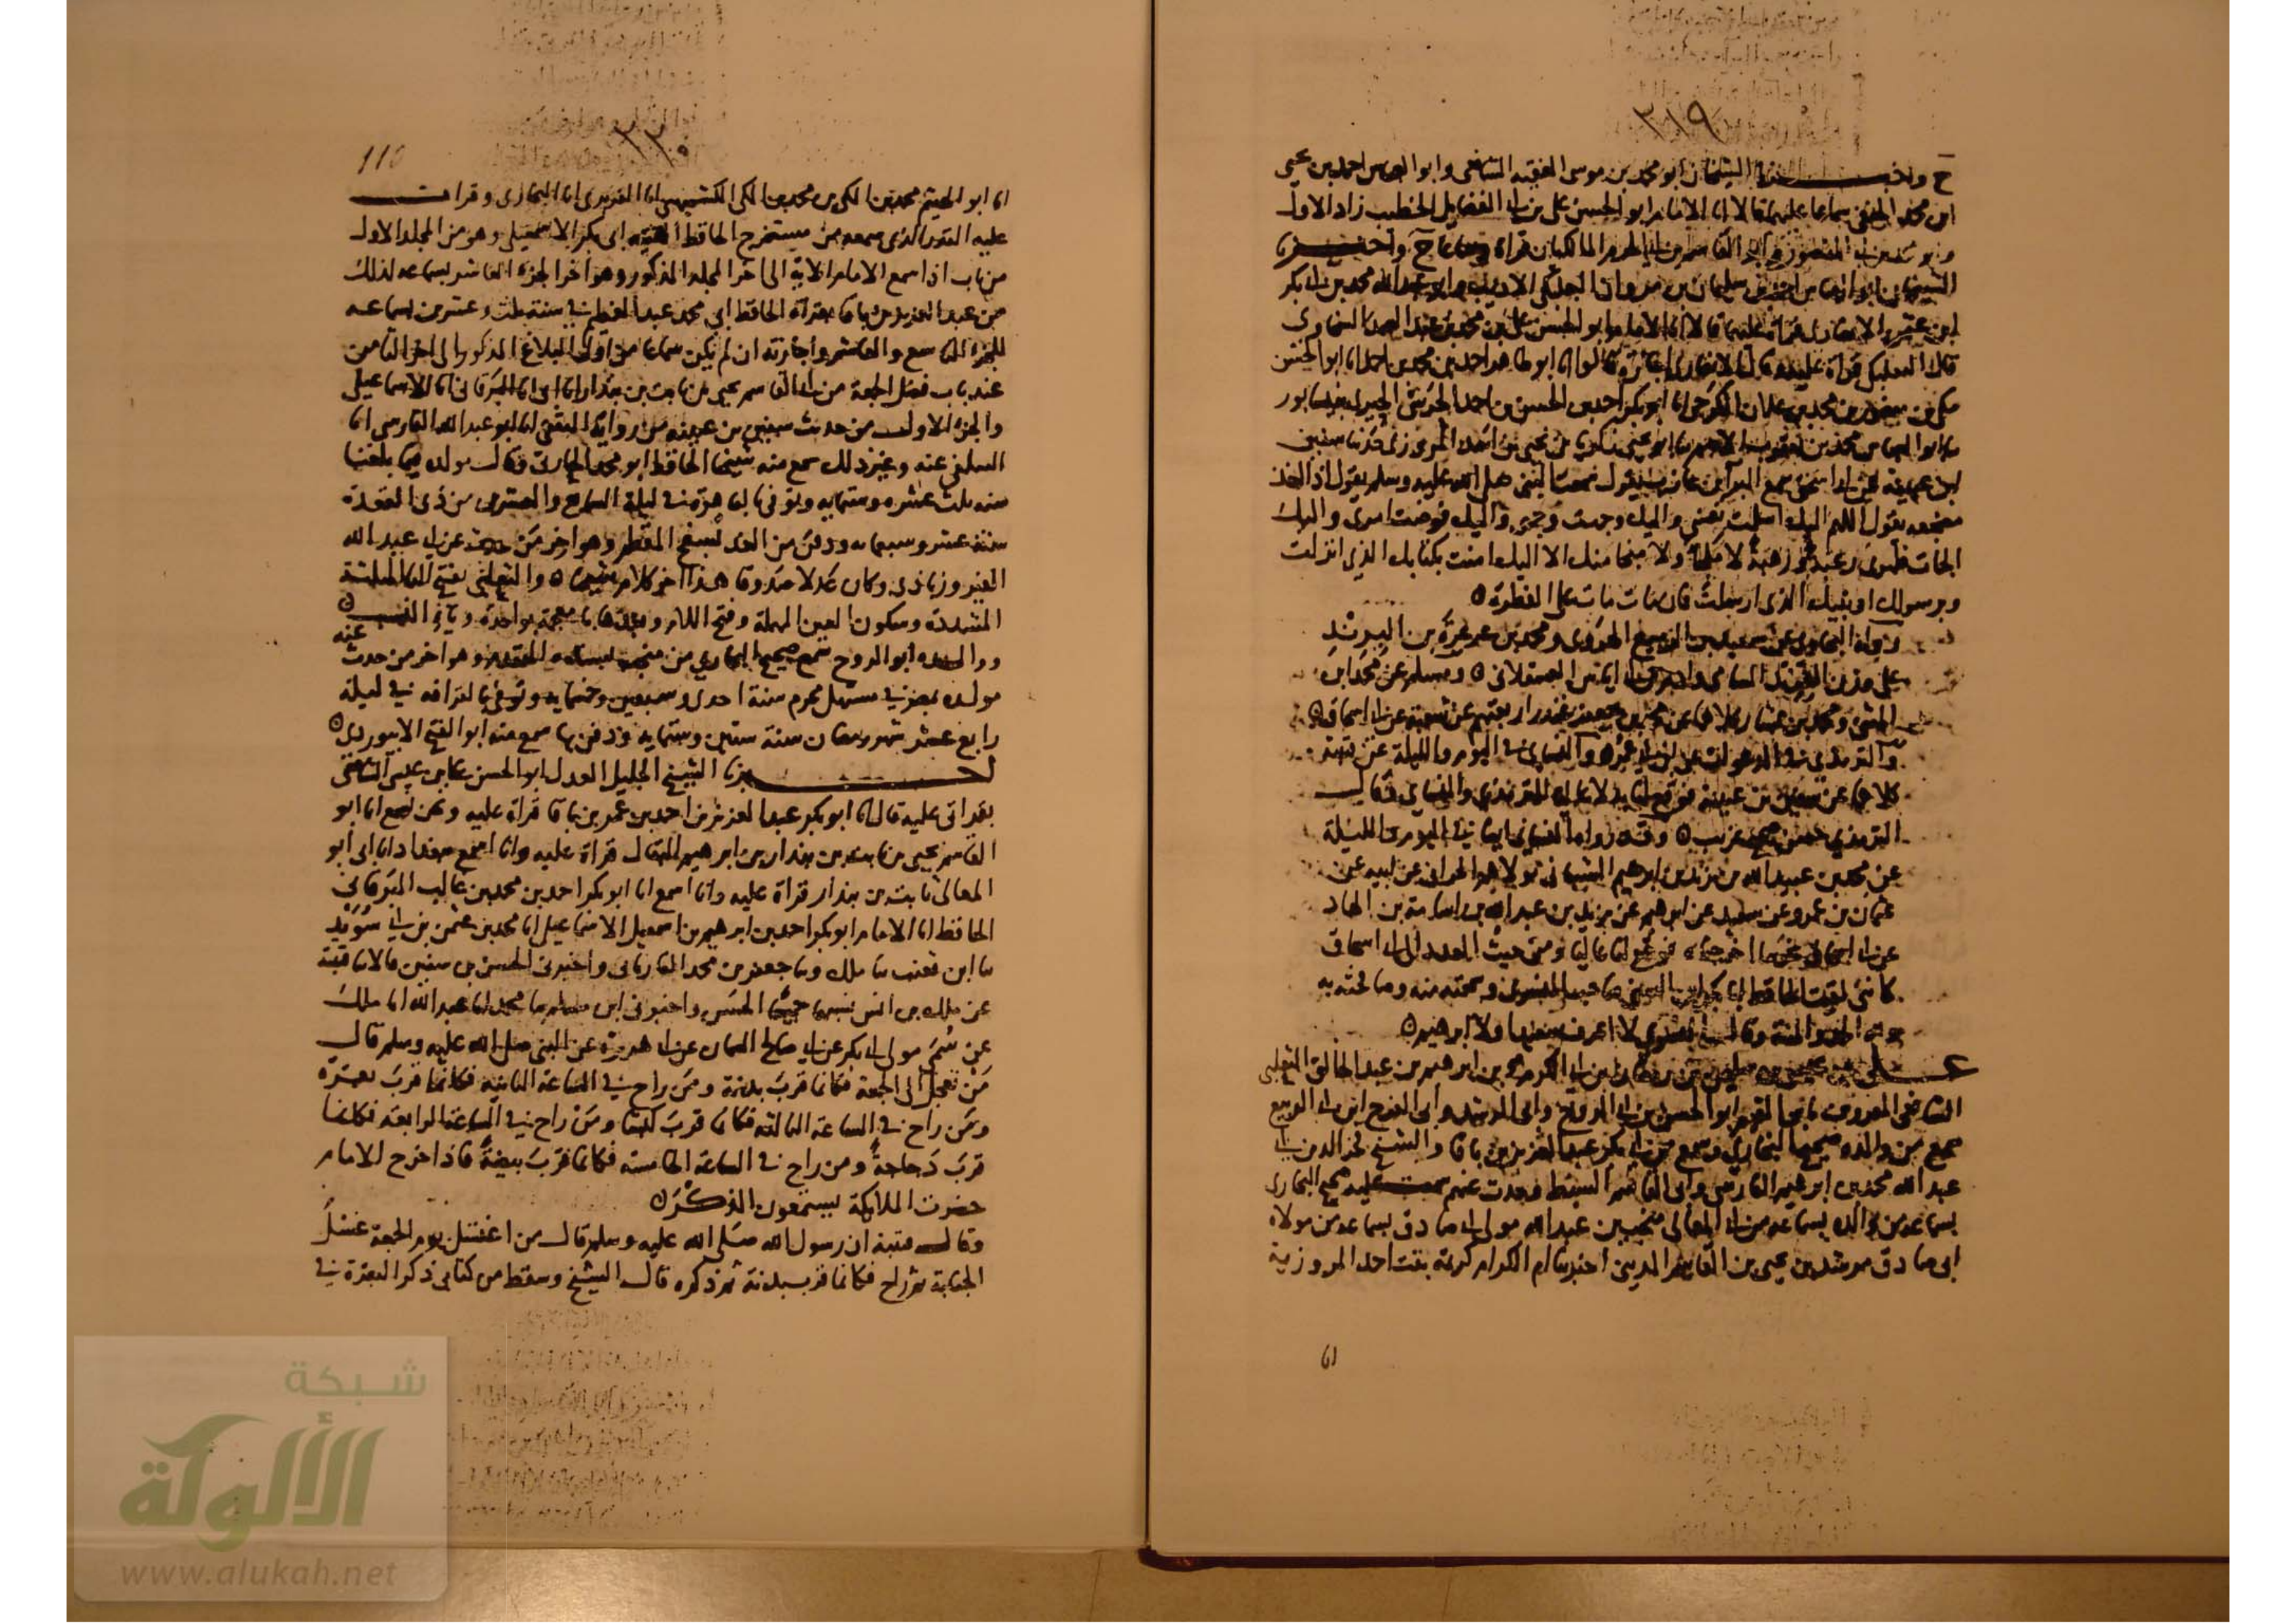 ٣١٩
ح واخبــــرنا الشيخان ابو محمد بن موسى الفقيه الشافعي وابو العباس احمد بن يحيى
ابن محمد سماعا عليهما قالا انا الامام ابو الحسن علي بن ابي الفضايل الخطيب زاد الاول
المالكيان قراة ح واخبــرنا
الشيخان ابو العباس بن سليمان بن مروان البعلبكي الاديب وابو عبد الله محمد بن ابي بكر
قالا انا الامام ابو الحسن علي بن محمد بن عبد الصمد السخاوي
قالوا انا ابو طاهر احمد بن محمد بن احمد انا ابو الحسن
مكي بن منصور بن محمد بن علان الكرجي انا ابو بكر احمد بن الحسن بن احمد الحرشي الحيري بنيسابور
ابو العباس محمد بن يعقوب الاصم نا ابو يحيى زكريا بن يحيى بن اسد المروزي نا سفين
ابن عيينة عن ابي اسحق سمع البرا بن عازب يقول سمعت النبي صلى الله عليه وسلم يقول اذا اخذ
مضجعه يقول اللهم اليك اسلمت نفسي واليك وجهت وجهي واليك فوضت امري واليك
الجات ظهري رغبة ورهبة لا ملجا ولا منجا منك الا اليك امنت بكتابك الذي انزلت
وبرسولك او نبيك الذي ارسلت فان مات مات على الفطرة ٥
رواه البخاري عن سعيد بن الربيع الهروي ومحمد بن عرعرة بن البرند
وادم بن ابي اياس العسقلاني ٥ ومسلم عن محمد ابن
المثنى ومحمد بن بشار كلاهما عن محمد بن جعفر غندر اربعتهم عن شعبة عن ابي اسحاق ٥
والترمذي في الدعوات عن ابن ابي عمر والنسائي في اليوم والليلة عن قتيبة
كلاهما عن سفين بن عيينة فوقع لنا بدلا عاليا للترمذي والنسائي وقال
الترمذي حسن صحيح غريب ٥ وقد رواه النسائي ايضا في اليوم والليلة
عن محمد بن عبيد الله بن يزيد بن ابرهيم الشيباني مولاهم الحراني عن ابيه عن
عثمان بن عمرو عن سعيد عن ابرهيم عن يزيد بن عبد الله بن اسامة بن الهاد
عن ابي اسحاق فوقع لنا عاليا ومن حيث العدد الى ابي اسحاق
كاني لقيت الحافظ ابا بكر ابن السني وسمعته منه وصافحته به
ولله الحمد والمنة وقال
علـــي بن عيسى بن سليمن بن رمضان بن ابي الكرم بن ابرهيم بن عبد الخالق الثعلبي
الشافعي المعروف بابن القيم ابو الحسن بن ابي الروح وابي الرشد وابي الفرج ابن ابي الربيع
سمع من والده صحيح البخاري وسمع من ابي بكر عبد العزيز بن باقا والشيخ فخر الدين ابي
عبد الله محمد بن ابرهيم الفارسي وابي القاسم السبط وحدث عنهم سمعت عليه صحيح البخاري
بسماعه من والده بسماعه من ابي المعالي منجب بن عبد الله مولى ابي صادق بسماعه من مولاه
ابي صادق مرشد بن يحيى بن القاسم المديني اخبرتنا ام الكرام كريمة بنت احمد المروزية
انا
٣٢٠
110
انا ابو الهيثم محمد بن المكي بن محمد بن المكي الكشميهني انا الفربري انا البخاري وقرات
عليه القدر الذي سمعه من مستخرج الحافظ الفقيه ابي بكر الاسمعيلي وهو من المجلد الاول
من باب اذا سمع الامام الاية الى اخر المجلد المذكور وهو اخر الجزء العاشر بسماعه لذلك
من عبد العزيز بن باقا بقراة الحافظ ابي محمد عبد العظيم في سنة ثلث وعشرين بسماعه
للجزء التاسع والعاشر واجازته ان لم يكن سماعا من اول البلاغ المذكور الى اخر الثامن
عند باب فضل الجمعة من ابي القاسم يحيى بن ثابت بن بندار انا ابي انا البرقاني انا الاسماعيلي
والجزء الاول من حديث سفين بن عيينة من رواية الثقفي انا ابو عبد الله الفارسي انا
السلفي عنه وغير ذلك سمع منه شيخنا الحافظ ابو محمد الحارثي وقال مولده فيما بلغنا
سنة ثلث عشرة وستمايه وتوفي بالقاهرة في ليلة السابع والعشرين من ذي القعدة
سنة عشر وسبعمايه ودفن من الغد بسفح المقطم وهو اخر من حدث عن ابي عبد الله
الفيروزبادي وكان عدلا صدوقا هذا اخر كلام شيخنا ٥ والثعلبي بفتح الثا المثلثة
المشددة وسكون العين المهملة وفتح اللام وبعدها با معجمة بواحدة ويا النسب ٥
ووالـــده ابو الروح سمع صحيح البخاري من منجب بسنده المتقدم وهو اخر من حدث عنه
مولده بمصر في مستهل محرم سنة احدى وسبعين وخمسمايه وتوفي بالقرافه في ليلة
رابع عشر شهر رمضان سنة ستين وستمايه ودفن بها سمع منه ابو الفتح الابيوردي ٥
اخبــــرنا الشيخ الجليل العدل ابو الحسن علي بن عيسى الشافعي
بقراتي عليه قال انا ابو بكر عبد العزيز بن احمد بن عمر بن باقا قراة عليه ونحن نسمع انا ابو
القاسم يحيى بن ثابت بن بندار بن ابرهيم البقال قراة عليه وانا اسمع ببغداد انا ابي ابو
المعالي ثابت بن بندار قراة عليه وانا اسمع انا ابو بكر احمد بن محمد بن غالب البرقاني
الحافظ انا الامام ابو بكر احمد بن ابرهيم بن اسمعيل الاسماعيلي انا محمد بن عثمن بن ابي سويد
نا ابن قعنب نا ملك ونا جعفر بن محمد الفاريابي واخبرني الحسن بن سفين قالا نا قتيبة
عن ملك بن انس واخبرني ابن نا محمد انا عبد الله انا ملك
عن سمي مولى ابي بكر عن ابي صالح السمان عن ابي هريرة عن النبي صلى الله عليه وسلم قال
من تعجل الى الجمعة فكانما قرب بدنة ومن راح في الساعة الثانية فكانما قرب بقرة
ومن راح في الساعة الثالثة فكانما قرب كبشا ومن راح في الساعة الرابعة فكانما
قرب دجاجة ومن راح في الساعة الخامسة فكانما قرب بيضة فاذا خرج الامام
حضرت الملايكة يستمعون الذكر ٥
وقال قتيبة ان رسول الله صلى الله عليه وسلم قال من اغتسل يوم الجمعة غسل
الجنابة ثم راح فكانما قرب بدنة ثم ذكره قال الشيخ وسقط من كتابي ذكر البقرة في
شبكة
الألوكة
www.alukah.net